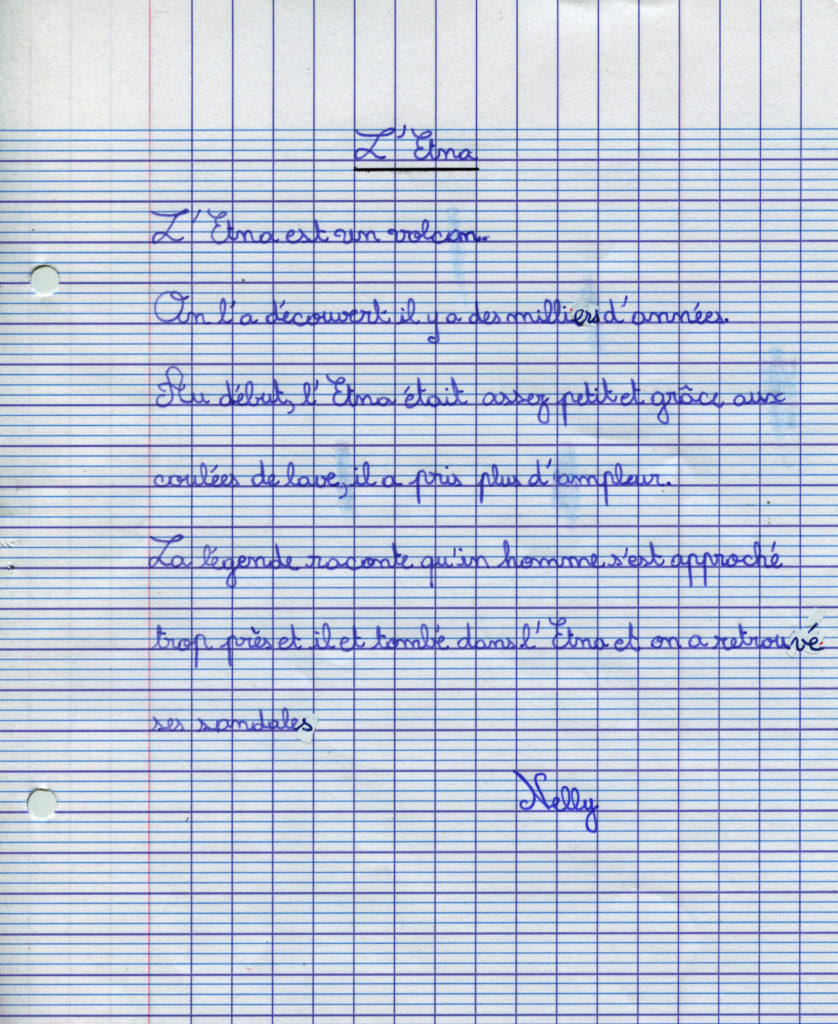 L'Etna
L'Etna est un volcan.
On l'a découvert il y a des milliers d'années.
Au début, l'Etna était assez petit et grâce aux
coulées de lave, il a pris plus d'ampleur.
La légende raconte qu'in homme s'est approché
trop près et il et tombé dans l'Etna et on a retrouvé
ses sandales
Nelly